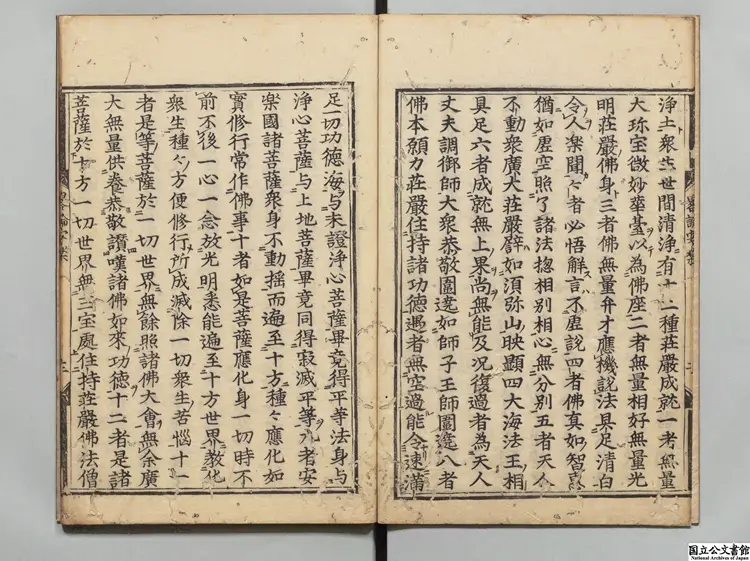 浄土衆生世間清浄有十二種荘嚴成就一者無量
大珎宝微妙華䑓以為佛座二者無量相好無量光
明荘嚴佛身三者佛無量弁才應機説法具足清白
令人楽聞々者必悟解言不虚説四者佛真如智恵
猶如虚空照了諸法揔相別相心無分別五者天人
不動衆廣大荘嚴譬如須弥山映顕四大海法王相
具足六者成就無上果尚無能及况復過者為天人
丈夫調御師大衆恭敬圍遶如師子王師圍遶八者
佛本願力荘嚴住持諸功徳遇者無空過能令速滿
足一切功徳海与未證浄心菩薩畢竟得平等法身与
浄心菩薩与上地菩薩畢竟同得寂滅平等九者安
楽國諸菩薩衆身不動揺而遍至十方種々應化如
實修行常作佛事十者如是菩薩應化身一切時不
前不後一心一念放光明悉能遍至十方世界教化
衆生種々方便修行所成滅除一切衆生苦惱十一
者是等菩薩於一切世界無餘照諸佛大會無余廣
大無量供養恭敬讃嘆諸佛如來功徳十二者是諸
菩薩於十方一切世界無三宝處住持荘嚴佛法僧
国立公文書館
National Archives of Japan